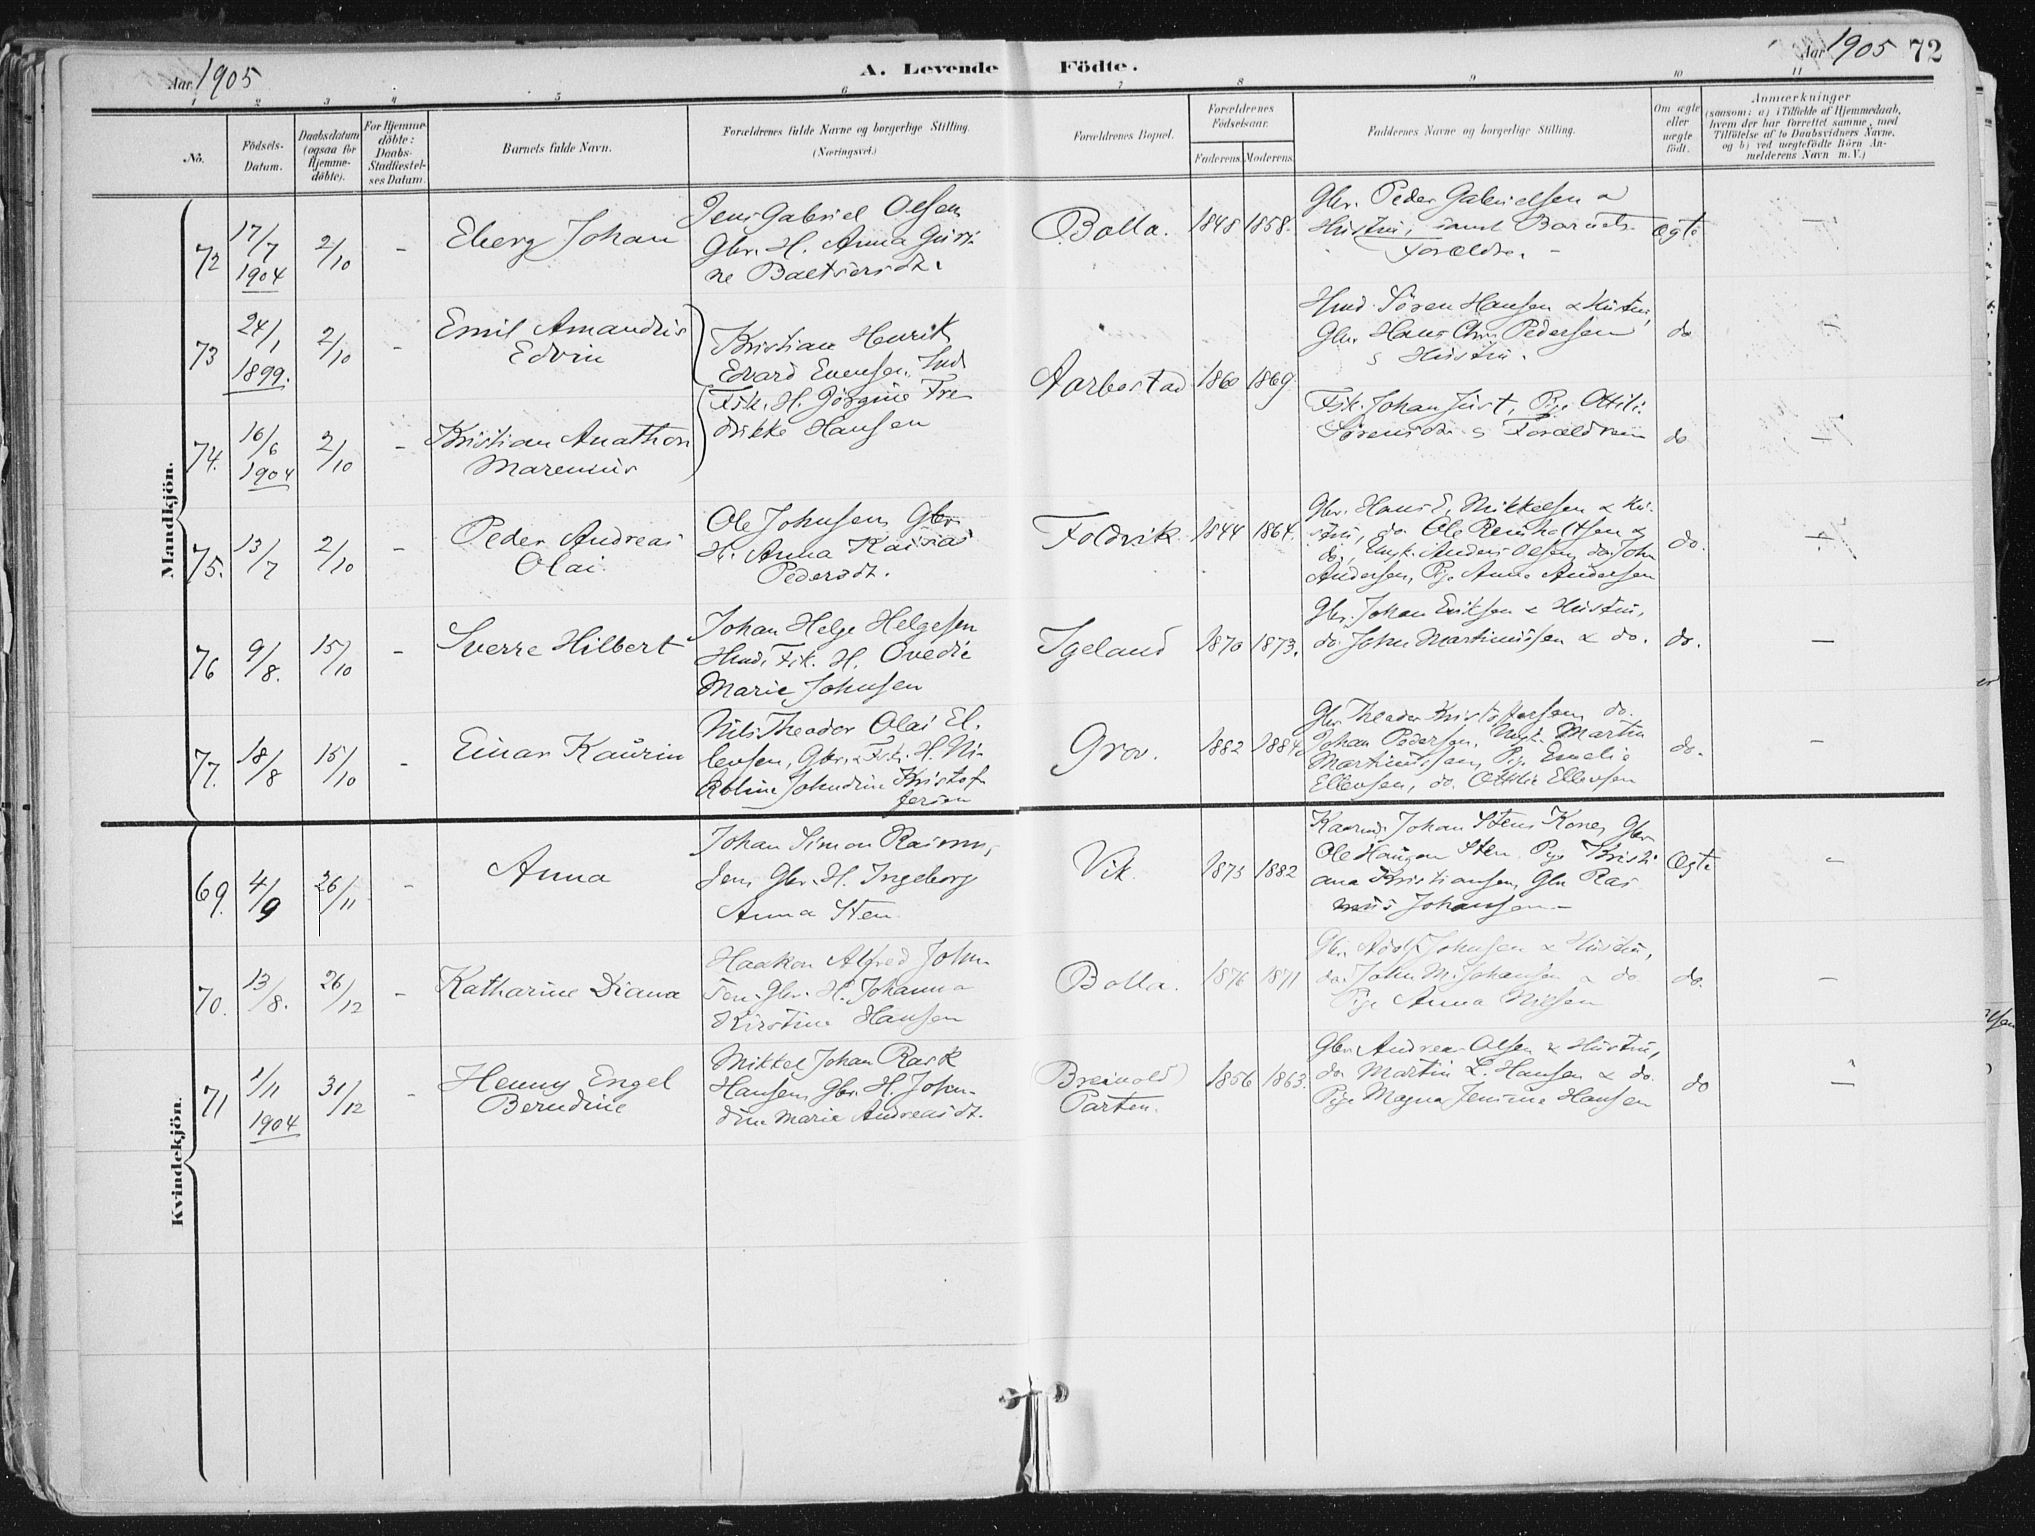 Aar 1905
A. Levende Födte.
Aar 1905 72
1 2 3 4 5 6 7 8 9 10 11
No.
Födsels-
Datum.
Daabsdatum
(ogsaa for
Hjemme-
döbte).
For Hjemme-
döbte:
Daabs-
Stadfæstel-
ses Datum.
Barnets fulde Navn.
Forældrenes fulde Navne og borgerlige Stilling.
(Næringsvei.)
Forældrenes Bopæl.
Forældrenes
Födselsaar.
Faderens. Moderens.
Faddernes Navne og borgerlige Stilling.
Om ægte
eller
uægte
födt.
Anmærkninger
(saasom: a) i Tilfælde af Hjemmedaab,
hvem der har forrettet samme, med
Tilföielse af to Daabsvidners Navne,
og b) ved uægtefödte Börn An-
melderens Navn m.V.)
Mandkjön.
72
17/7
1904
2/10
-
Eberg Johan
Jens Gabriel Olsen
Gbr. H. Anna Gusti
ne Baltsersdt.
Bolla.
1848 1858.
Gbr. Peder Gabrielsen &
Hustru, samt Barnets
Forældre. -
Ægte
-
73
24/1
1899.
2/10
-
Emil Amandus
Edvin
Kristian Henrik
Edvard Evensen. Ind
Fsk. H. Jørgine Fre
drikke Hansen
Aarbostad
1860 1869.
Hmd. Søren Hansen & Hustru,
Gbr. Hans Chr. Pedersen
& Hustru.
do
-
74.
16/6
1904
2/10
-
Kristian Anathon
Marenius
Fsk. Johan Just, Pige Ottili
Sørensdt. & Forældrene
do
-
75.
13/7
2/10
-
Peder Andreas
Olai.
Ole Johnsen, Gbr.
H. Anna Kaisa
Pedersdt.
Foldvik.
1844 1864.
Gbr. Hans E. Mikkelsen & Hu-
stru, do. Ole Reinholtsen &
do, Ungk. Anders Olsen, do. John
Andersen, Pige Anna Andersen
do.
-
76
9/8.
15/10
-
Sverre Hilbert
Johan Helge Helgesen
Hmd. Fsk. H. Ovedie
Marie Johnsen
Igeland
1870 1873.
Gbr. Johan Eriksen & Hustru,
do. John Martinussen & do.
do.
-
77.
18/8
15/10
-
Einar Kaurin
Nils Theodor Olai El.
levsen, Gbr. & Fsk. H. Ni-
koline Johndine Kristof
fersen
Grov.
1882 1884
Gbr. Theodor Kristoffersen, do.
Johan Pedersen, Ungk. Martin
Martinussen, Pige Emelie
Ellevsen, do. Ottilie Ellevsen
do.
-
Kvindekjön.
69.
4/9
26/11
-
Anna
Johan Simon Rasmus,
sen, Gbr. H. Ingeborg
Anna Sten
Vik.
1873 1882
Johan Stens Kone, Gbr.
Ole Haugan Sten, Pige Kristi
ana Kristiansen, Gbr Ras
mus Johansen -
Ægte
-
70.
13/8.
26/12
-
Katharine Diana
Haakon Alfred John-
sen, Gbr. H. Johanna
Kirstine Hansen
Bolla.
1876 1871
Gbr. Adolf Johnsen & Hustru,
do. John M. Johansen & do
Pige Anna Nilsen
do.
-
71
1/11
1904
31/12
-
Henny Engel
Berndine
Mikkel Johan Rask
Hansen, Gbr. H. Johan-
dine Marie Andreasdt.
Breivold
Parten.
1856 1863.
Gbr. Andreas Olsen & Hustru,
do Martin L. Hansen & do.
Pige Magna Jensine Hansen
do
-